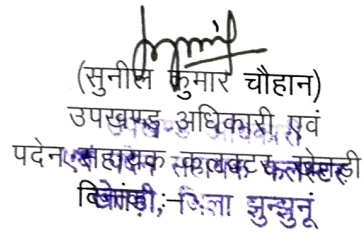 (सुनील कुमार चौहान)
उपखण्ड अधिकारी एवं
पदेन सहायक कलक्टर, खेतड़ी
जिला झुन्झुनूं